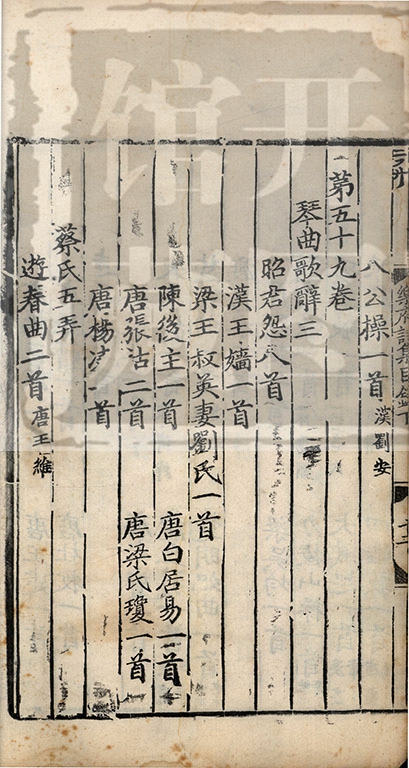 樂府詩集目錄下
八公操一首 漢劉安
第五十九卷
琴曲歌辭三
昭君怨八首
漢王嬙一首
梁王叔英妻劉氏一首
陳後主一首 唐白居易一首
唐張祜二首 唐梁氏瓊一首
唐楊凌一首
蔡氏五弄
遊春曲二首 唐王維
开
馆